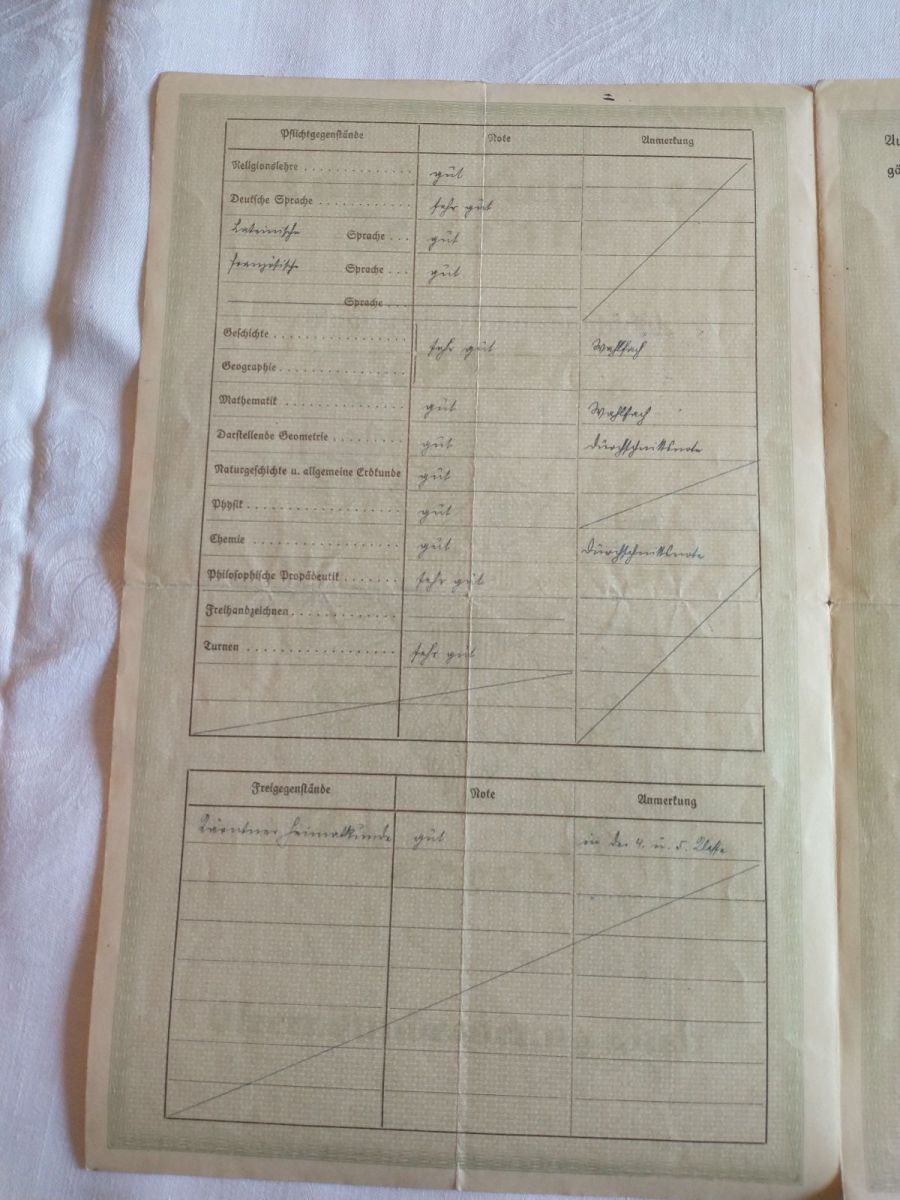 Pflichtgegenstände Note Anmerkung
Religionslehre . . . . . . . . . . . . . . gut
Deutsche Sprache . . . . . . . . . . . . sehr gut
Lateinische Sprache . . . gut
Französische Sprache . . . gut
Sprache . . .
Geschichte . . . . . . . . . . . . . . . . . sehr gut Wahlfach
Geographie . . . . . . . . . . . . . . . .
Mathematik . . . . . . . . . . . . . . . gut Wahlfach
Darstellende Geometrie . . . . . . . . . gut Durchschnittsnote
Naturgeschichte u. allgemeine Erdkunde gut
Physik . . . . . . . . . . . . . . . . . . . gut
Chemie . . . . . . . . . . . . . . . . . . gut Durchschnittsnote
Philosophische Propädeutik . . . . . . . sehr gut
Freihandzeichnen . . . . . . . . . . . . .
Turnen . . . . . . . . . . . . . . . . . . sehr gut
Freigegenstände Note Anmerkung
Kärntner Heimatkunde gut in der 4. u. 5. Klasse